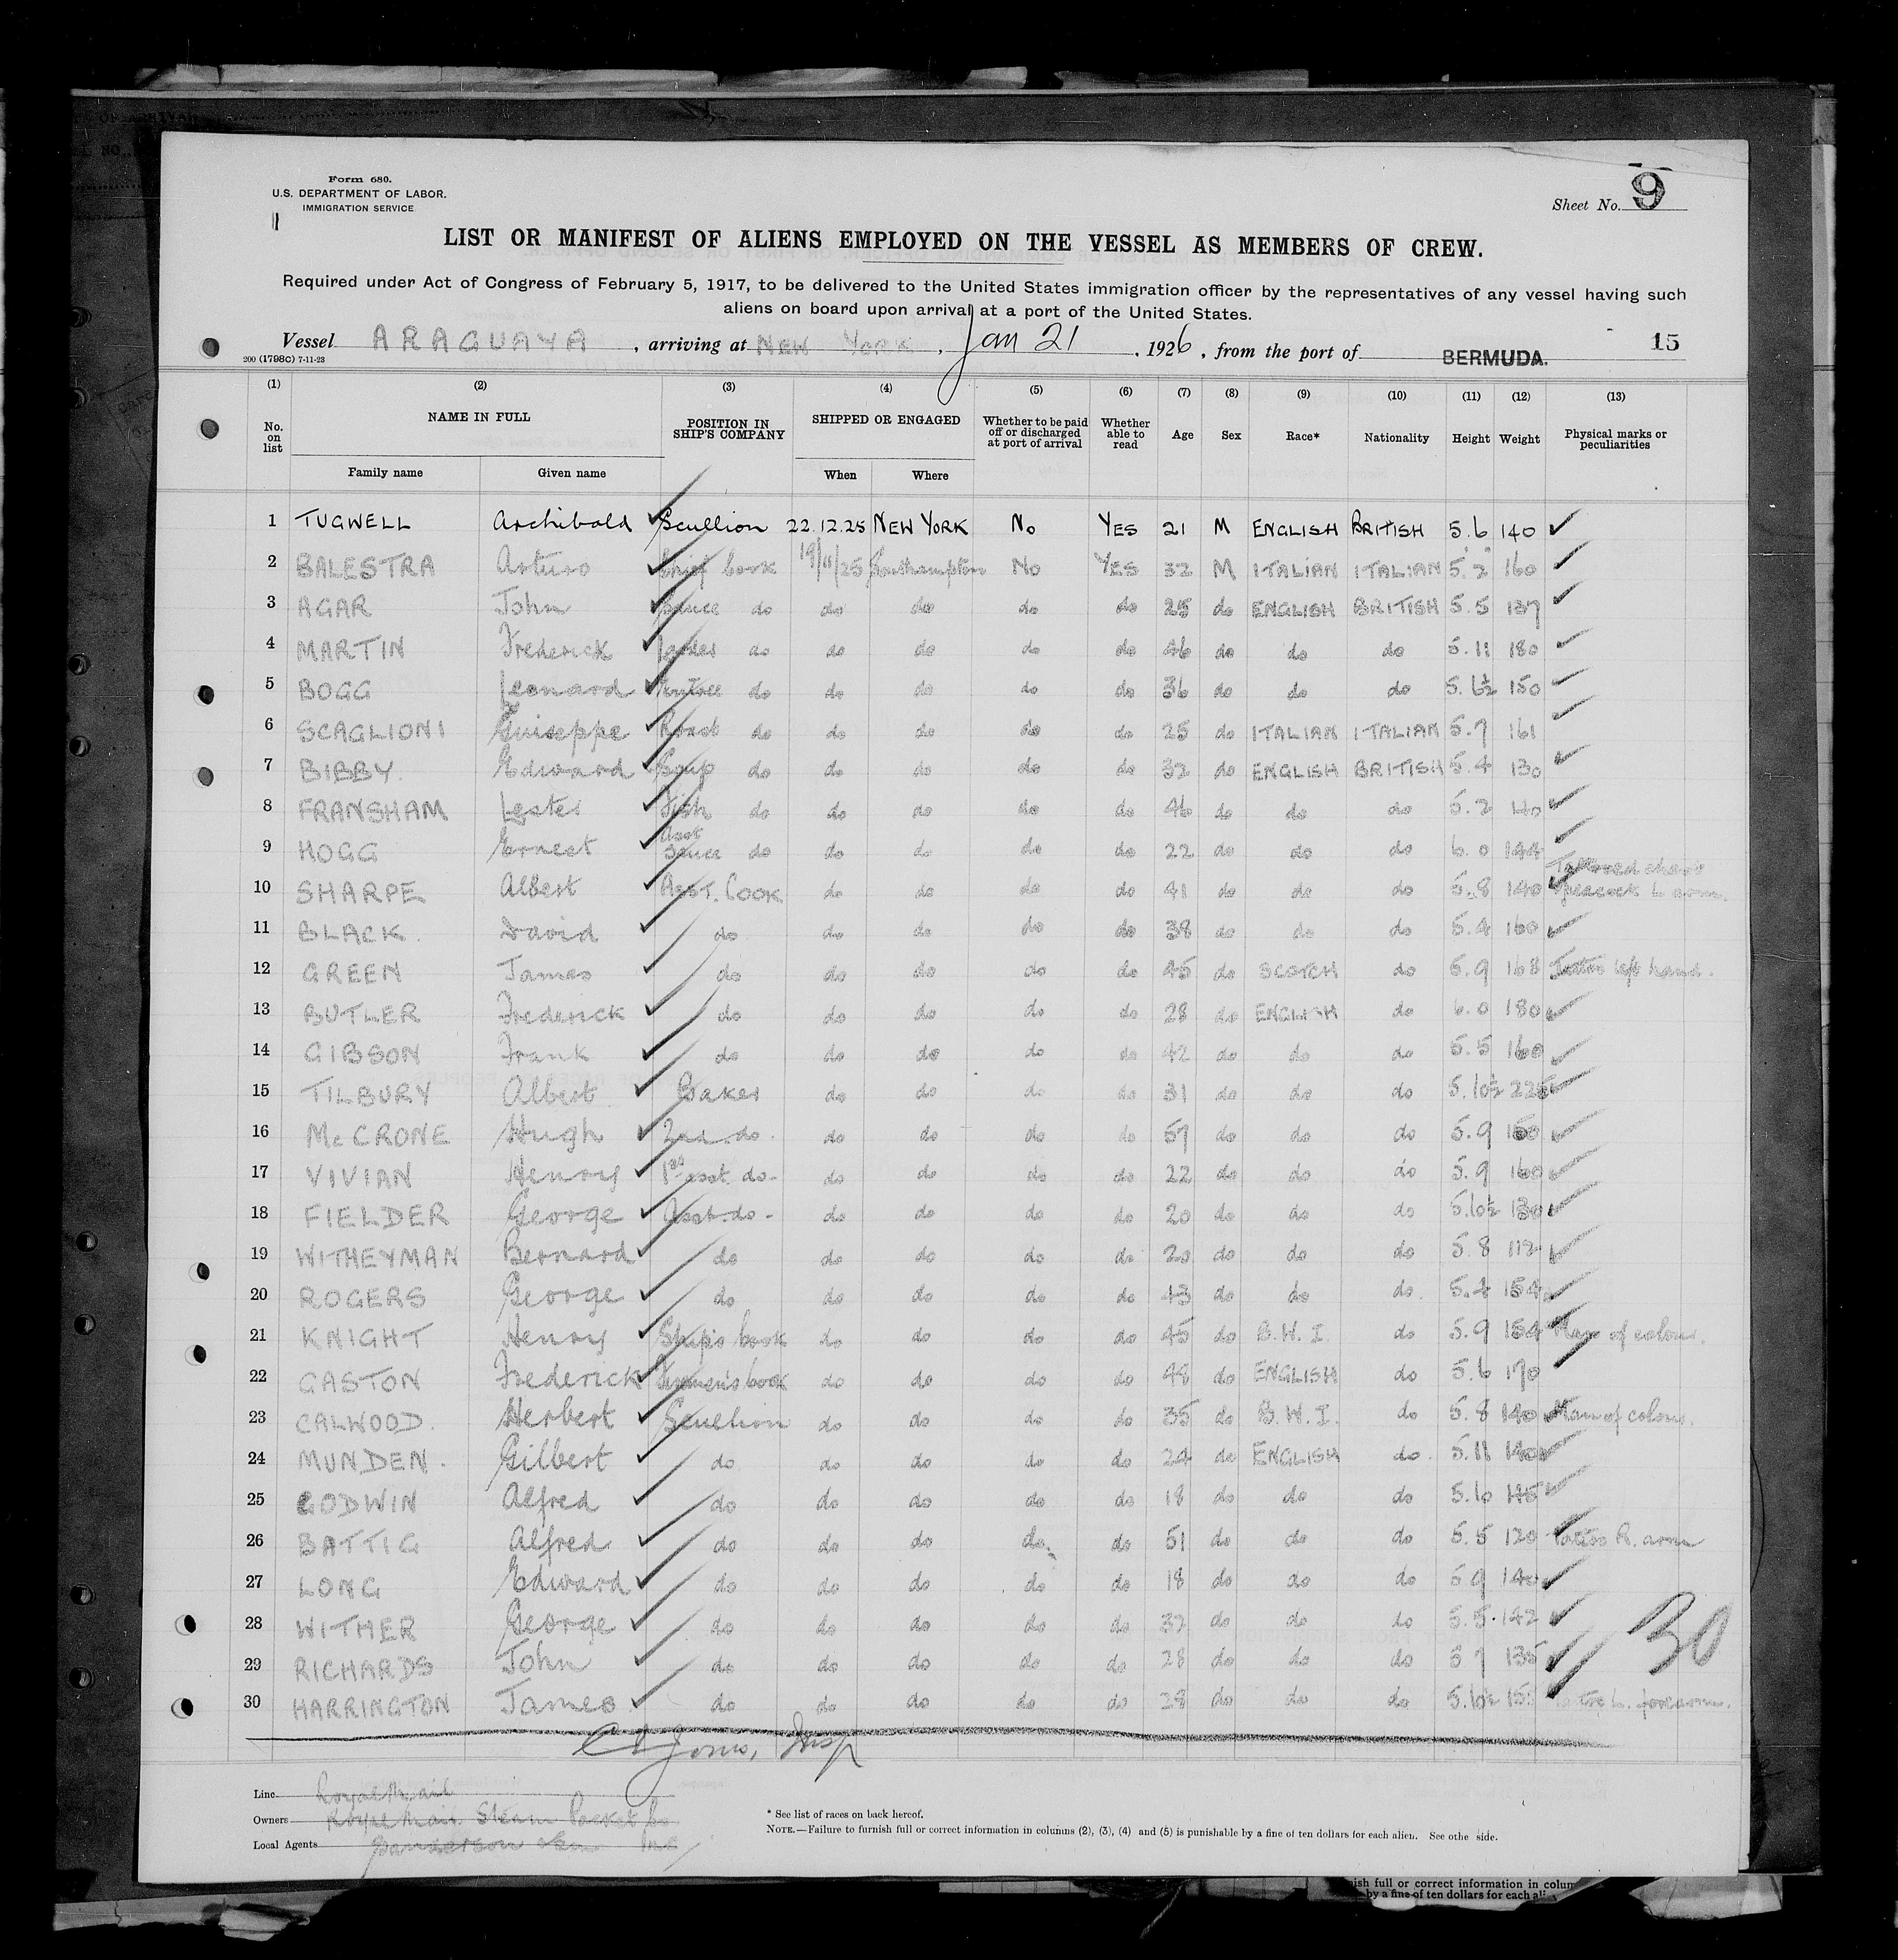 Form 680.
U.S. DEPARTMENT OF LABOR.
IMMIGRATION SERVICE
Sheet No. 9
LIST OR MANIFEST OF ALIENS EMPLOYED ON THE VESSEL AS MEMBERS OF CREW.
Required under Act of Congress of February 5, 1917, to be delivered to the United States immigration officer by the representatives of any vessel having such
aliens on board upon arrival at a port of the United States.
Vessel ARAGUAYA, arriving at NEW YORK, Jan 21, 1926, from the port of BERMUDA. 15
200 (1798C) 7-11-23
(1) (2) (3) (4) (5) (6) (7) (8) (9) (10) (11) (12) (13)
No. on list NAME IN FULL POSITION IN SHIP'S COMPANY SHIPPED OR ENGAGED Whether to be paid off or discharged at port of arrival Whether able to read Age Sex Race* Nationality Height Weight Physical marks or peculiarities
Family name Given name When Where
1 TUGWELL Archibald Scullion 22.12.25 NEW YORK No YES 21 M ENGLISH BRITISH 5.6 140
2 BALESTRA Arturo Chief Cook 19/11/25 Southampton No YES 32 M ITALIAN ITALIAN 5.2 160
3 AGAR John Sauce do do do do do 25 do ENGLISH BRITISH 5.5 137
4 MARTIN Frederick Larder do do do do do 46 do do do 5.11 180
5 BOGG Leonard Entree do do do do do 36 do do do 5.6½ 150
6 SCAGLIONI Guiseppe Roast do do do do do 25 do ITALIAN ITALIAN 5.7 161
7 BIBBY Edward Soup do do do do do 32 do ENGLISH BRITISH 5.4 130
8 FRANSHAM Lester Fish do do do do do 46 do do do 5.2
9 HOGG Ernest Asst Sauce do do do do do 22 do do do 6.0 144
10 SHARPE Albert Asst. Cook do do do do 41 do do do 5.8 140 Tattooed chest peacock L arm.
11 BLACK. David do do do do do 38 do do do 5.4 160
12 GREEN James do do do do do 45 do SCOTCH do 5.9 168 Tattoo left hand.
13 BUTLER Frederick do do do do do 28 do ENGLISH do 6.0 180
14 GIBSON Frank do do do do do 42 do do do 5.5 160
15 TILBURY Albert Baker do do do do 31 do do do 5.10½ 225
16 McCRONE Hugh 2nd do. do do do do 57 do do do 5.9
17 VIVIAN Henry 1st asst. do- do do do do 22 do do do 5.9 160
18 FIELDER George Asst. do- do do do do 20 do do do 5.10½ 130
19 WITHEYMAN Bernard do do do do do 20 do do do 5.8 112
20 ROGERS George do do do do do 43 do do do. 5.4 154
21 KNIGHT Henry Ship's Cook do do do do 45 do B.W.I. do 5.9 154 Man of colour.
22 GASTON Frederick Firemen's Cook do do do do 48 do ENGLISH do 5.6 170
23 CALWOOD. Herbert Scullion do do do do 35 do B.W.I. do 5.8 140 Man of colour.
24 MUNDEN. Gilbert do do do do do 24 do ENGLISH do. 5.11 140
25 GODWIN Alfred do do do do do 18 do do do 5.6
26 BATTIG Alfred do do do do do 51 do do do 5.5 120 Tattoo R. arm
27 LONG Edward do do do do do 18 do do do 5 9 140
28 WITHER George do do do do do 32 do do do 5.5. 142
29 RICHARDS John do do do do do 28 do do do 5 7 135
30 HARRINGTON James do do do do do 28 do do do 5.10½ L. forearm.
30
Jones, Insp
Line Royal Mail
Owners Royal Mail Steam Packet Co
Local Agents Sanderson & Son Inc
* See list of races on back hereof.
NOTE.—Failure to furnish full or correct information in columns (2), (3), (4) and (5) is punishable by a fine of ten dollars for each alien. See othe side.
nish full or correct information in colum
by a fine of ten dollars for each al